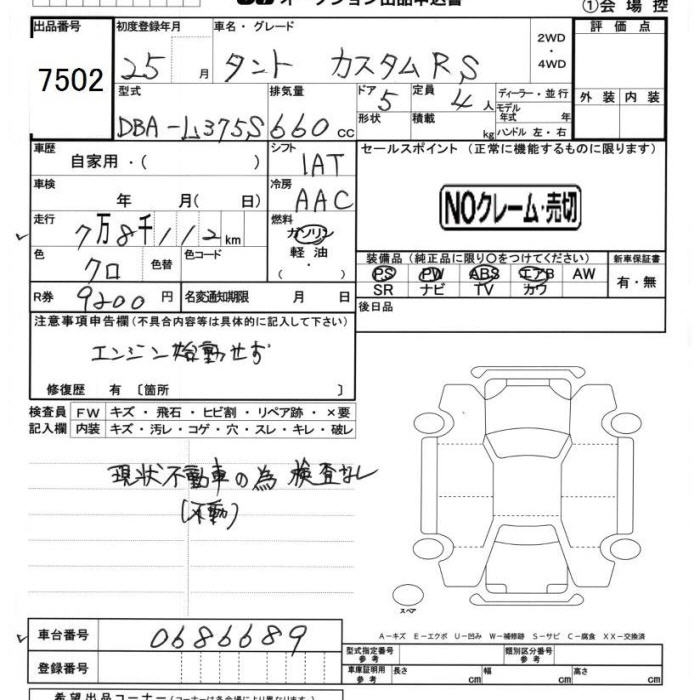 オークション出品申込書 ①会場控
出品番号 初度登録年月 車名・グレード 2WD・4WD 評価点
7502 25月 タント カスタムRS
型式 排気量 ドア 5 定員 4人 ディーラー・並行 外装 内装
DBA-L375S 660cc 形状 積載 kg モデル年式 年 ハンドル 左・右
車歴 自家用・( ) シフト 1AT セールスポイント (正常に機能するものに限ります)
車検 年 月( 日) 冷房 AAC
NOクレーム・売切
走行 7万8千112km 燃料 ガソリン
軽油
( ・ )
色 クロ 色替 色コード 装備品 (純正品に限り○をつけてください) 新車保証書
PS PW ABS エアB AW 有・無
SR ナビ TV カワ
R券 9200円 名変通知期限 月 日 後日品
注意事項申告欄(不具合内容等は具体的に記入して下さい)
エンジン始動せず
修復歴 有 〔箇所 〕
検査員 FW キズ・飛石・ヒビ割・リペア跡・×要
記入欄 内装 キズ・汚レ・コゲ・穴・スレ・キレ・破レ
現状不動車の為 検査なし
(不動)
スペア
車台番号 0686689 A-キズ E-エクボ U-凹み W-補修跡 S-サビ C-腐食 XX-交換済
型式指定番号 参考 類別区分番号 参考
登録番号 車庫証明用 参考 長さ cm 幅 cm 高さ cm
希望出品コーナー(コーナーは各会場により異なります)